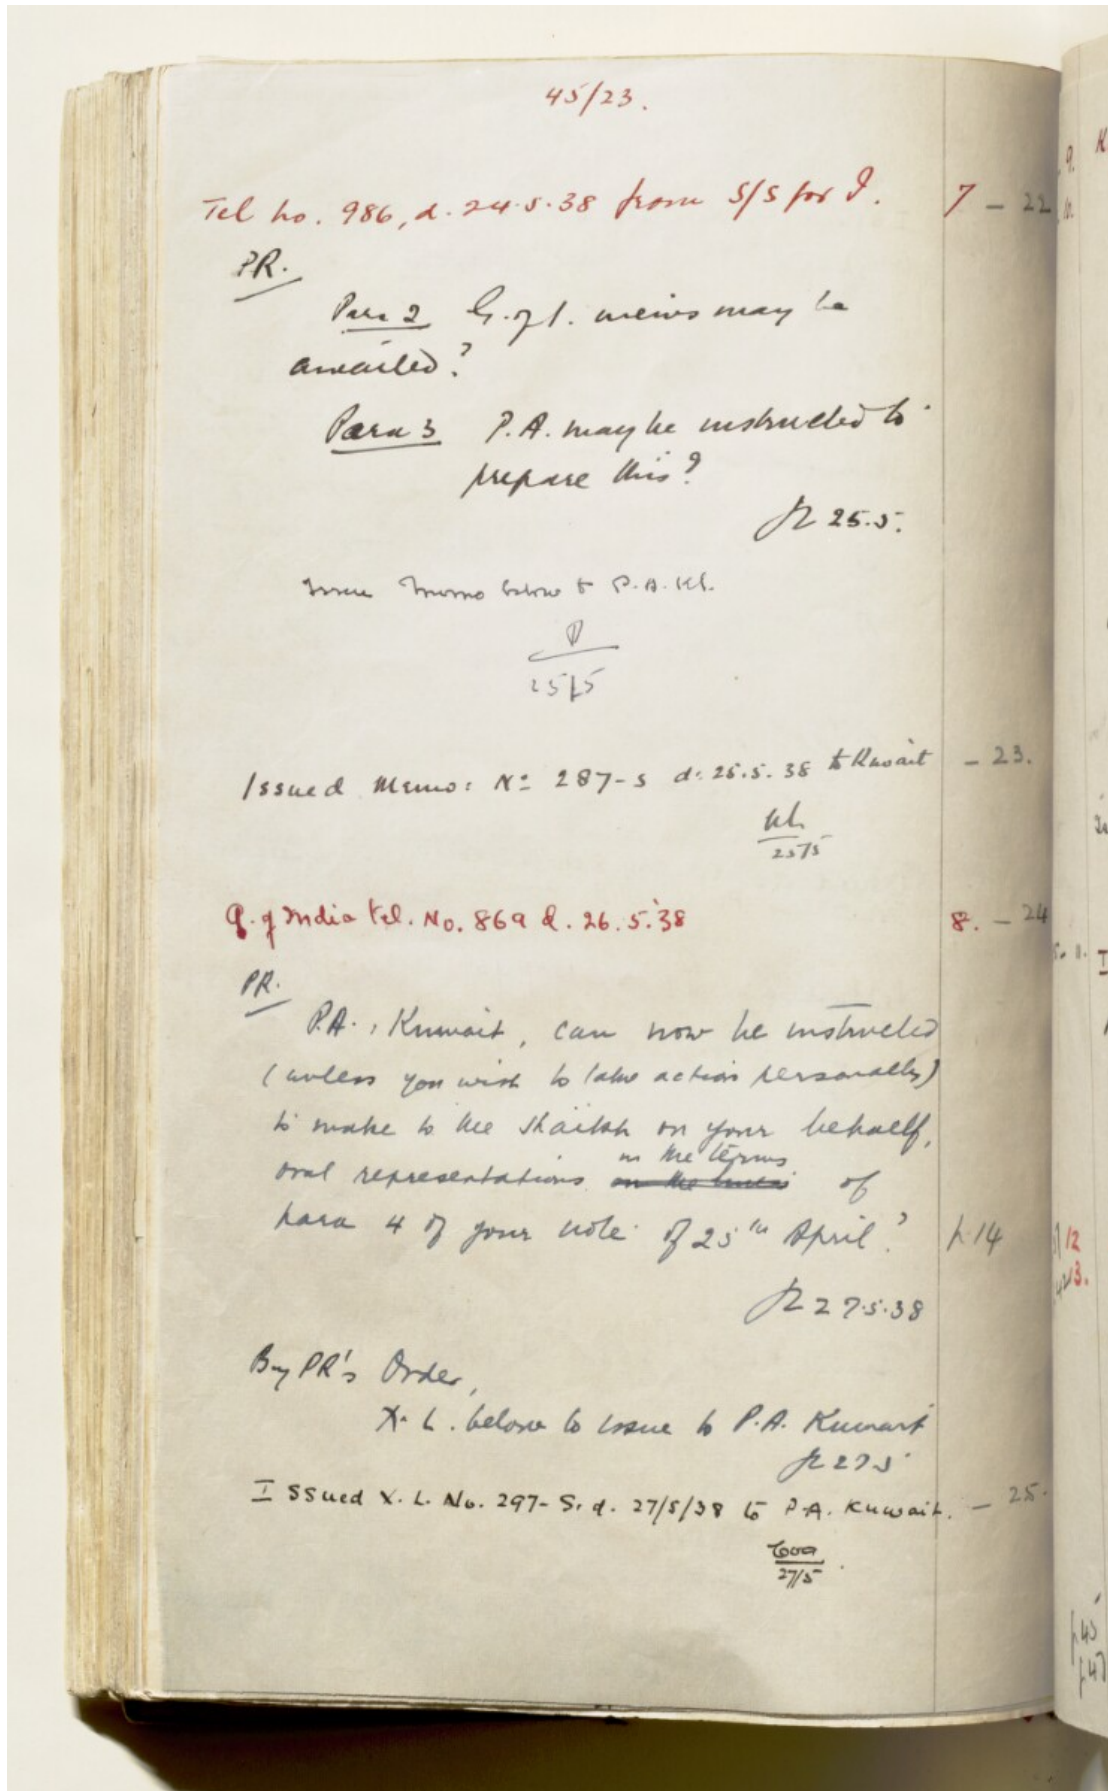 45/23.
Tel no. 986, d. 24.5.38 from S/S for I. 7 - 22
PR.
Para 2 G. of I. views may be
awaited?
Para 3 P.A. may be instructed to
prepare this?
25.5.
Issue Memo below to P.A. Kt.
25/5
Issued Memo: No 287-S d: 25.5.38 to Kuwait - 23.
25/5
G. of India tel. No. 869 d. 26.5.'38 8. - 24
PR.
P.A., Kuwait, can now be instructed
(unless you wish to take action personally)
to make to the Shaikh on your behalf,
in the terms
oral representations on the lines of
para 4 of your note of 25th April? p.14
27.5.38
By PR's Order,
X.L. below to issue to P.A. Kuwait
27.5
Issued X.L. No. 297-S. d. 27/5/38 to P.A. Kuwait. - 25.
27/5.
12
13.
p.45
p.47